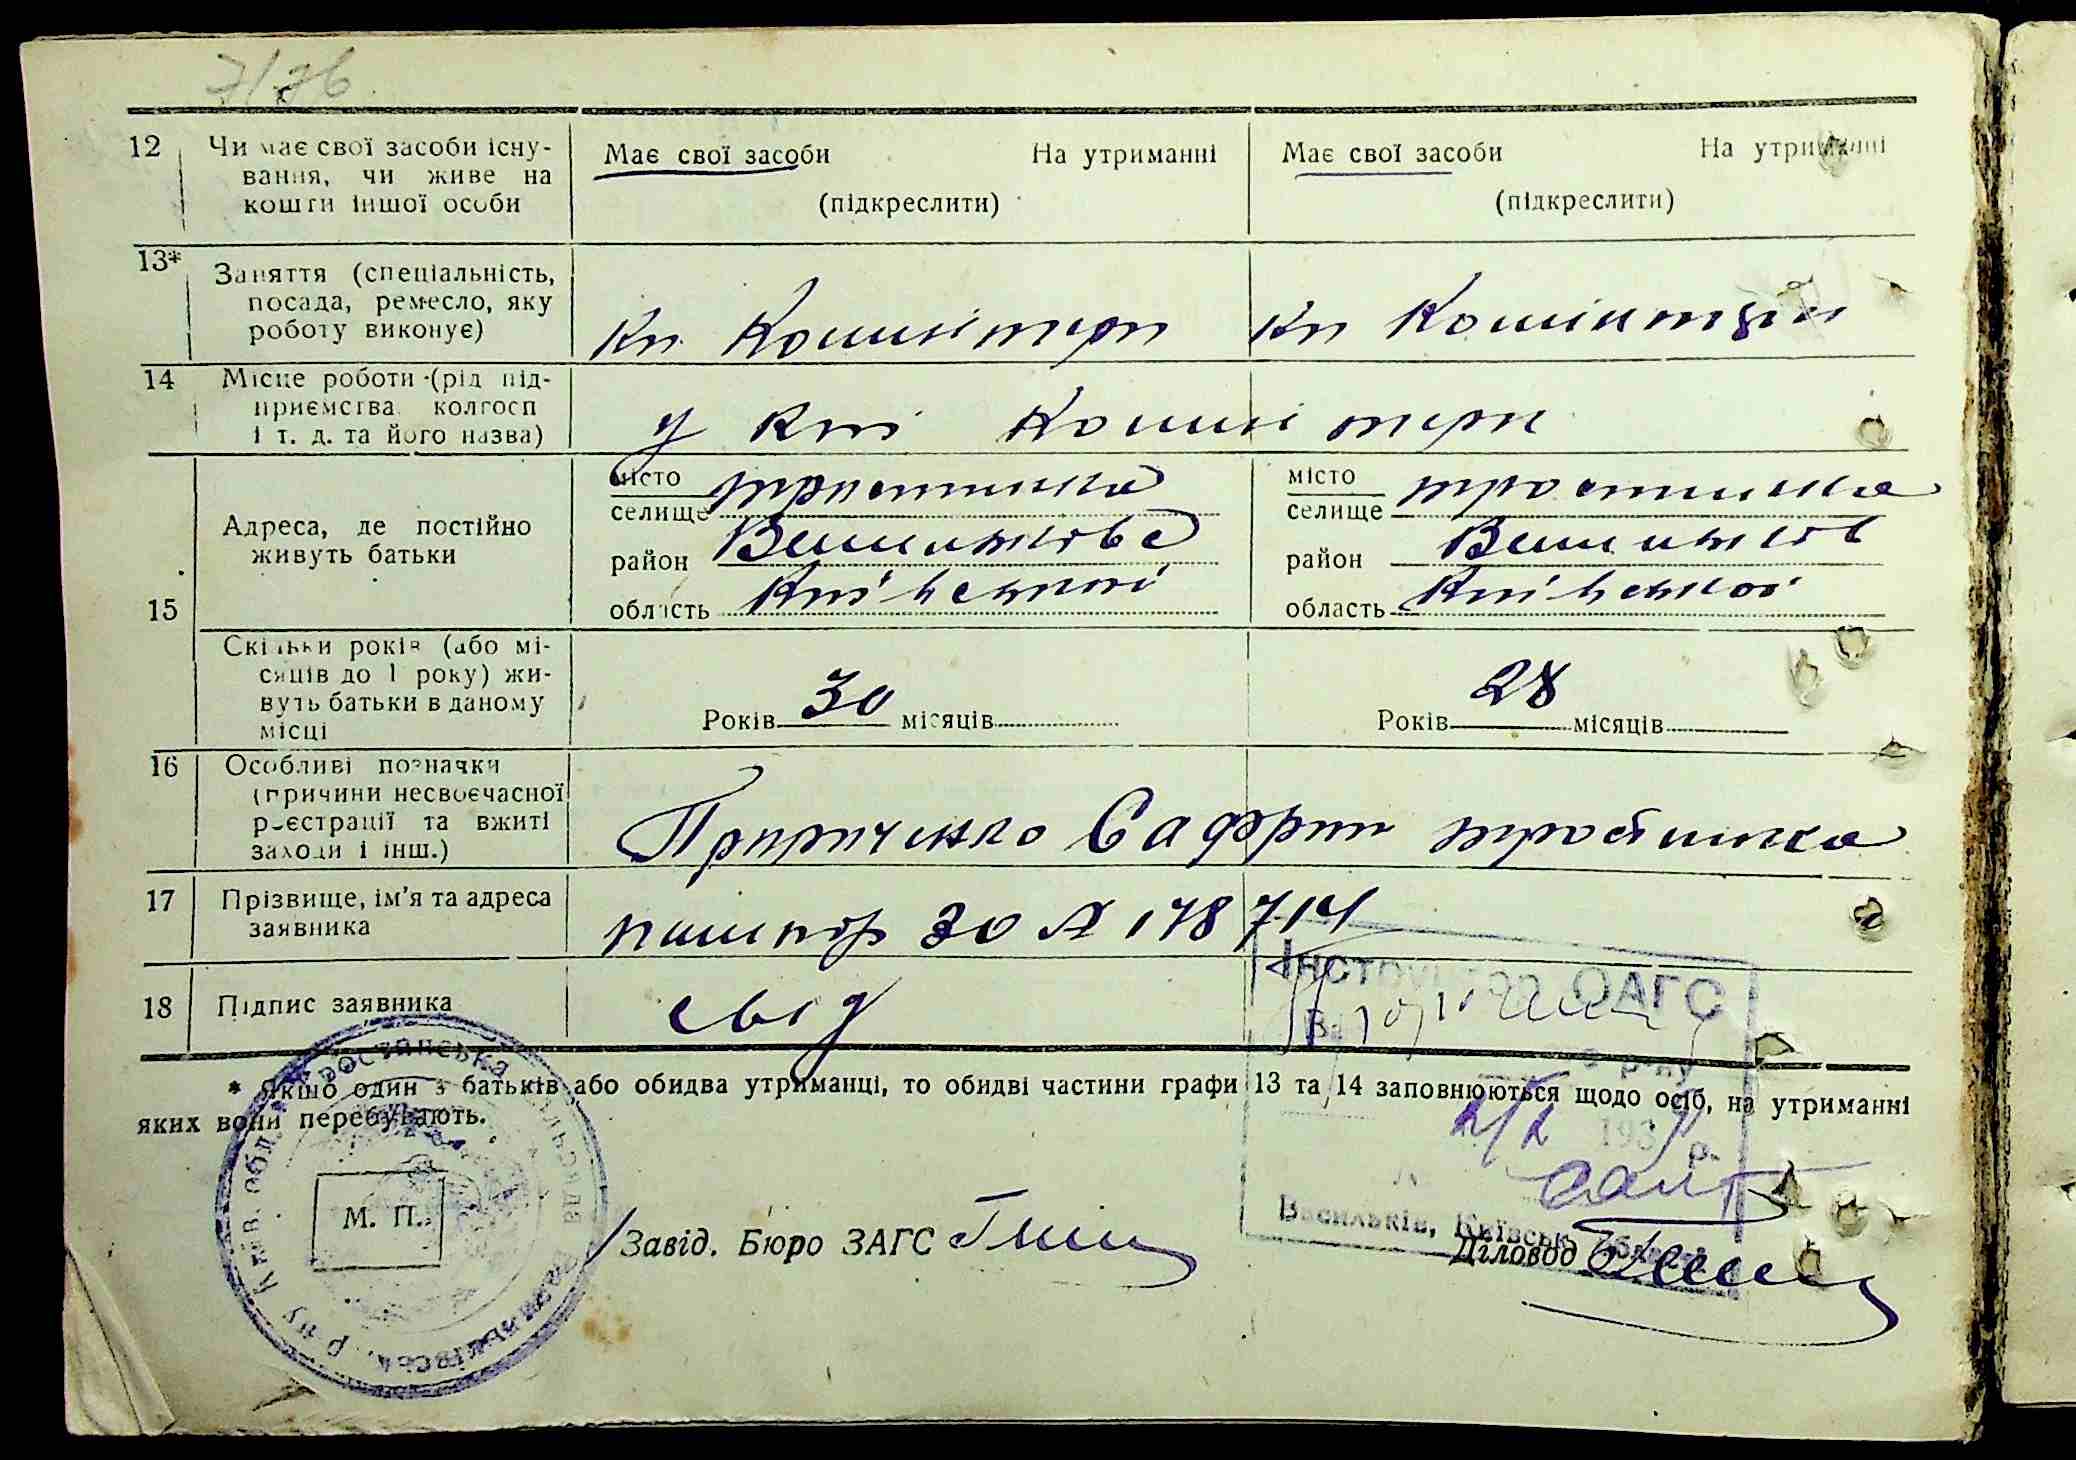 7/76
12 Чи має свої засоби існу-
вання, чи живе на
кошти іншої особи
Має свої засоби На утриманні
(підкреслити)
Має свої засоби На утриманні
(підкреслити)
13* Заняття (спеціальність,
посада, ремесло, яку
роботу виконує)
Кп Комінтерн
Кп Комінтерн
14 Місце роботи (рід під-
приємства, колгосп
і т. д. та його назва)
у Кпі Комінтерн
15 Адреса, де постійно
живуть батьки
місто
селище Тростинка
район
область Київської
місто
селище Тростинка
район
область Київської
Скільки років (або мі-
сяців до 1 року) жи-
вуть батьки в даному
місці
Років 30 місяців
Років 28 місяців
16 Особливі позначки
(причини несвоєчасної
реєстрації та вжиті
заходи і інш.)
Сафрон Тростинка
17 Прізвище, ім'я та адреса
заявника
пашпор ЗО А 178714
18 Підпис заявника
Інструктор ОАГС
р-ну
193 р.
Васильків, Київськ.
* Якщо один з батьків або обидва утриманці, то обидві частини графи 13 та 14 заповнюються щодо осіб, на утриманні
яких вони перебувають.
М. П.
Завід. Бюро ЗАГС
Діловод